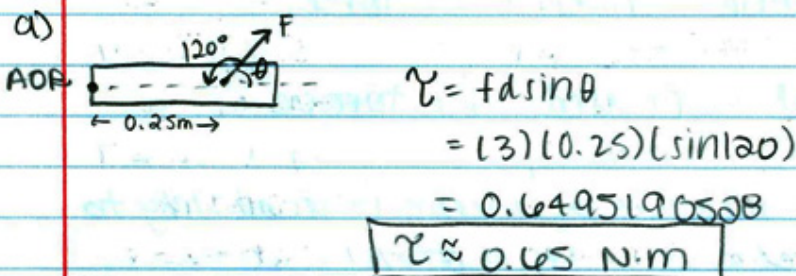 a)
F
120°
θ
AOR
← 0.25m →
τ = fdsinθ
= (3)(0.25)(sin120)
= 0.6495190528
τ ≈ 0.65 N·m